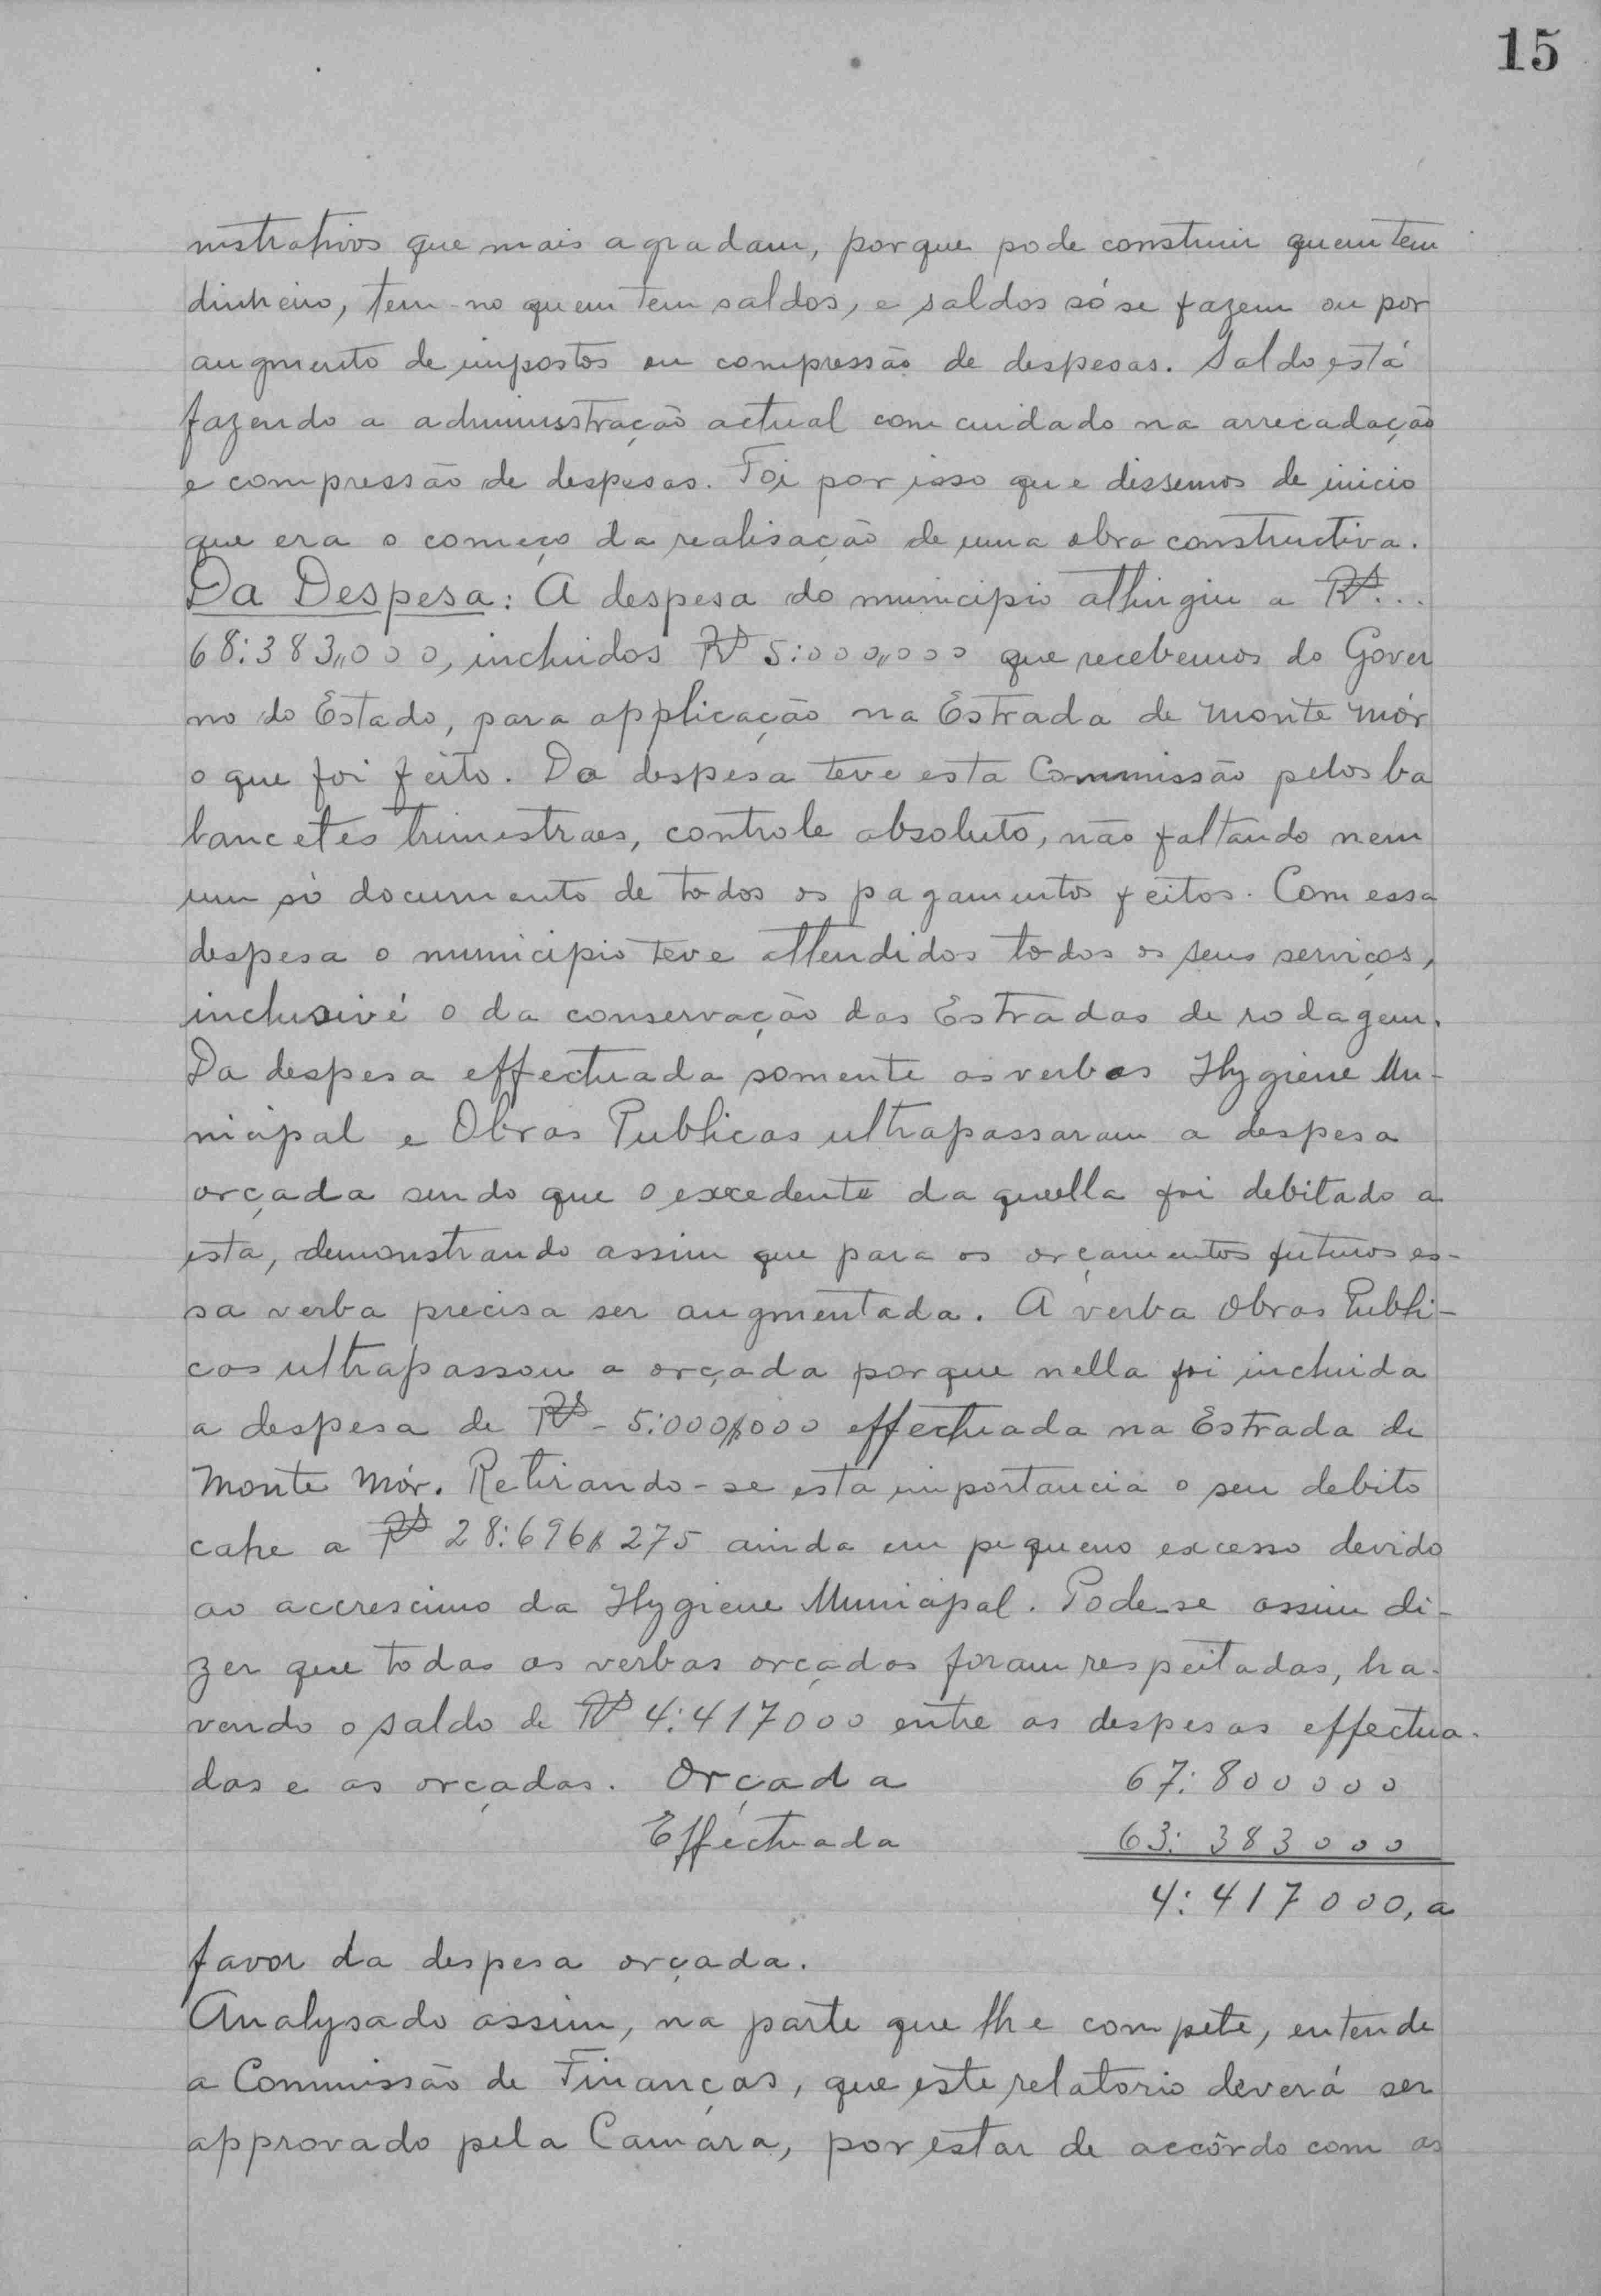 15
nistrativos que mais agradam, porque pode construir quem tem
dinheiro, tem-no quem tem saldos, e saldos só se fazem ou por
augmento de impostos ou compressão de despesas. Saldo está
fazendo a administração actual com cuidado na arrecadação
e compressão de despesas. Foi por isso que dissemos de inicio
que era o começo da realisação de uma obra constructiva.
Da Despesa: A despesa do municipio attingiu a Rs...
68:383,,000, incluidos Rs 5:000,,000 que recebemos do Gover
no do Estado, para applicação na Estrada de Monte Mór
o que foi feito. Da despesa teve esta Commissão pelos ba
lancetes trimestraes, controle absoluto, não faltando nem
um só documento de todos os pagamentos feitos. Com essa
despesa o municipio teve attendidos todos os seus serviços,
inclusivé o da conservação das Estradas de rodagem.
Da despesa effectuada somente as verbas Hygiene Mu-
nicipal e Obras Publicas ultrapassaram a despesa
orçada sendo que o excedente daquella foi debitado a
esta, demonstrando assim que para os orçamentos futuros es-
sa verba precisa ser augmentada. A verba Obras Publi-
cas ultrapassou a orçada porque nella foi incluida
a despesa de Rs - 5:000$000 effectuada na Estrada de
Monte Mór. Retirando-se esta importancia o seu debito
cahe a Rs 28:696$275 ainda em pequeno excesso devido
ao accrescimo da Hygiene Municipal. Pode-se assim di-
zer que todas as verbas orçadas foram respeitadas, ha-
vendo o saldo de Rs 4:417000 entre as despesas effectua-
das e as orçadas. Orçada 67:800000
Effectuada 63:383000
4:417000, a
favor da despesa orçada.
Analysado assim, na parte que lhe compete, entende
a Commissão de Finanças, que este relatorio deverá ser
approvado pela Camara, por estar de accôrdo com as